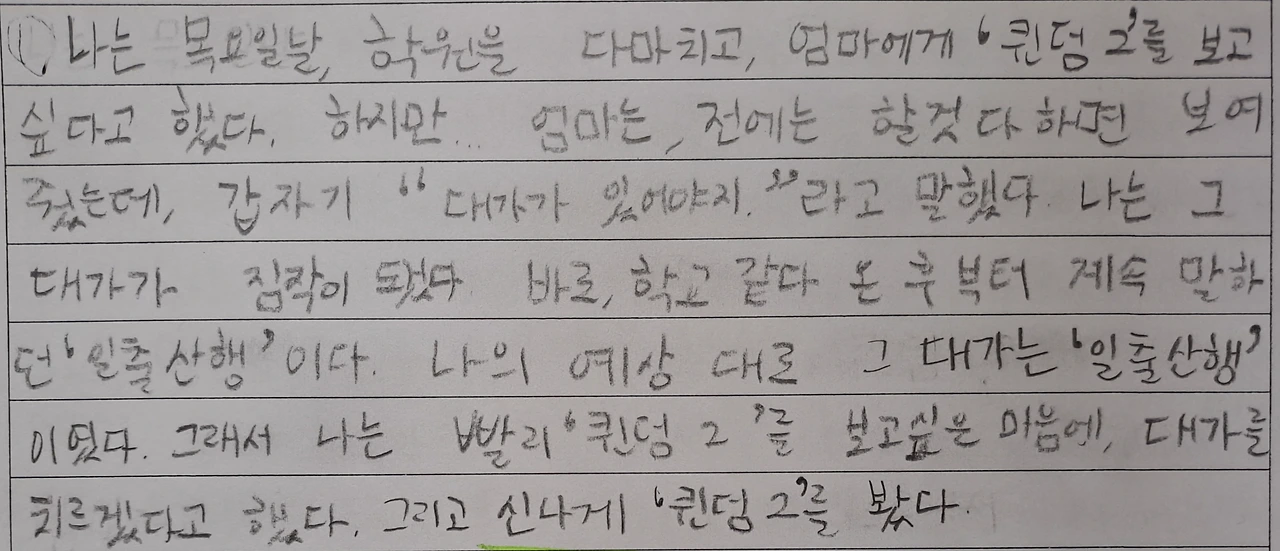 ① 나는 목요일날, 학원을 다마치고, 엄마에게 '퀸덤 2'를 보고
싶다고 했다. 하지만... 엄마는, 전에는 할것 다하면 보여
줬는데, 갑자기 "대가가 있어야지."라고 말했다. 나는 그
대가가 짐작이 됐었다. 바로, 학교 같다 온 후부터 계속 말하
던 '일출산행'이다. 나의 예상 대로 그 대가는 '일출산행'
이였다. 그래서 나는 빨리 '퀸덤 2'를 보고싶은 마음에, 대가를
치르겠다고 했다. 그리고 신나게 '퀸덤 2'를 봤다.